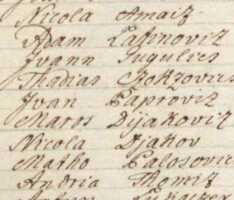 Nicola Amaiz
Adam Lalinoviz
Ivann Jugulies
Thadias Chokzovies
Ivan Paproviz
Maros Dijakoviz
Nicola Djakov
Matho Palosovic
Andria Thomiz